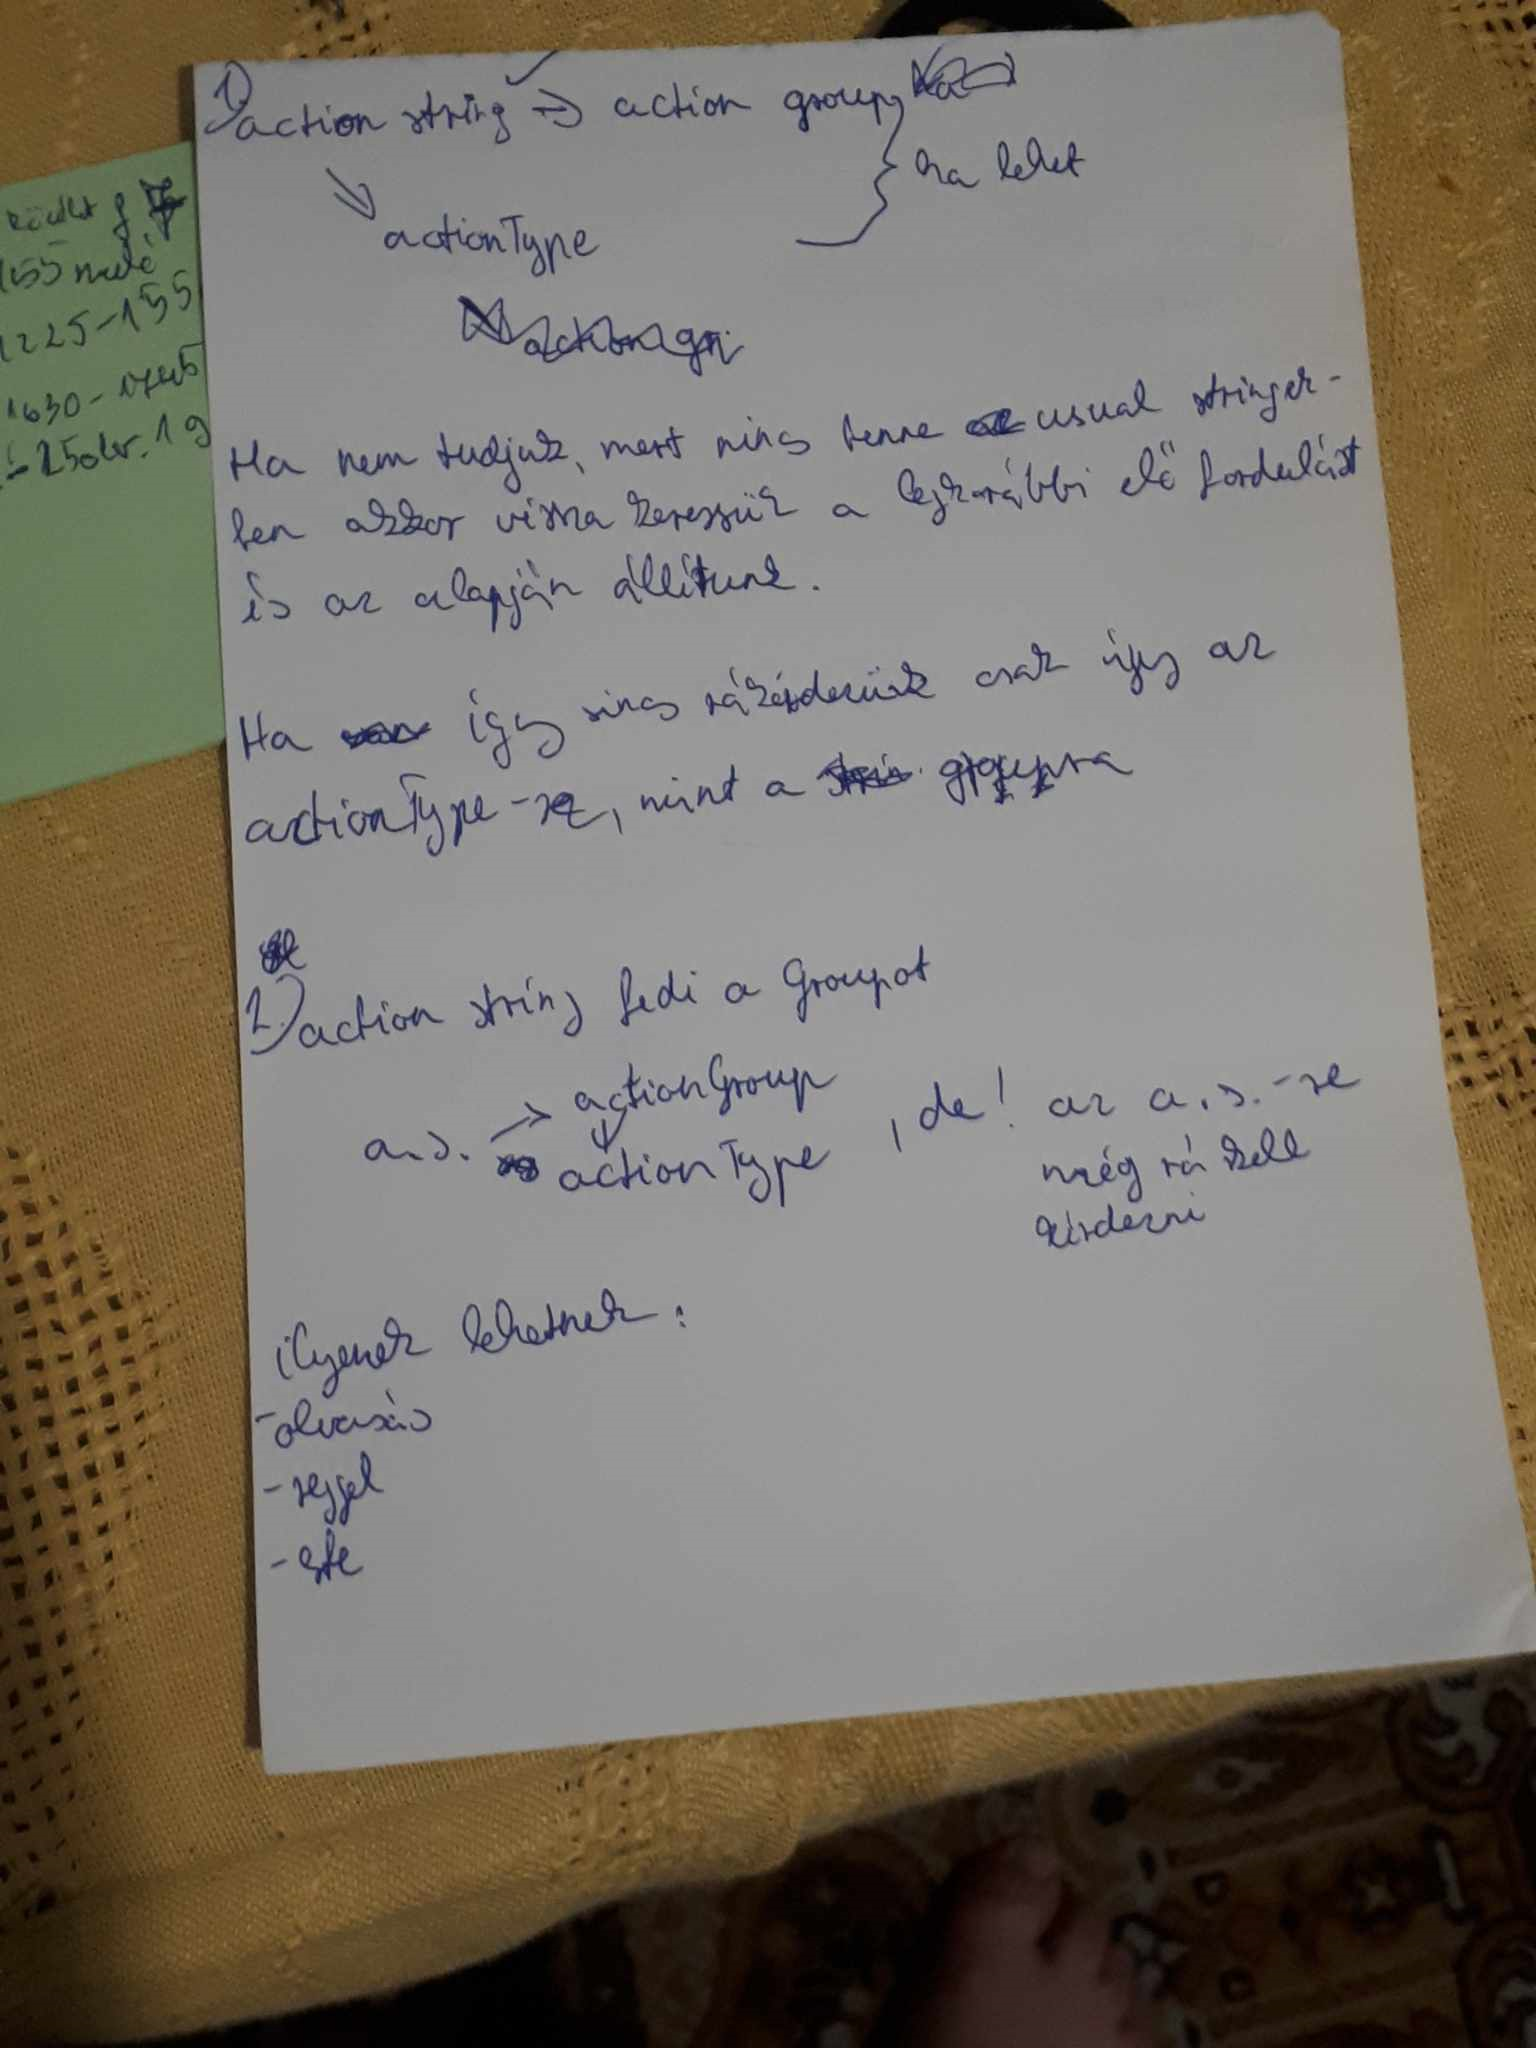 1) action string → action group
ha lehet
actionType
Ha nem tudjuk, mert nincs benne usual stringek-
ben akkor vissza keressük a legkorábbi elő fordulást
és az alapján állítunk.
Ha így sincs rákérdezünk csak úgy az
actionType-re, mint a groupra
2.) action string fedi a Groupot
a.s. → actionGroup
↓
actionType , de! az a.s.-re
még rá kell
kérdezni
ilyenek lehetnek:
-olvasás
-reggel
-este
1225-155
1630-1745